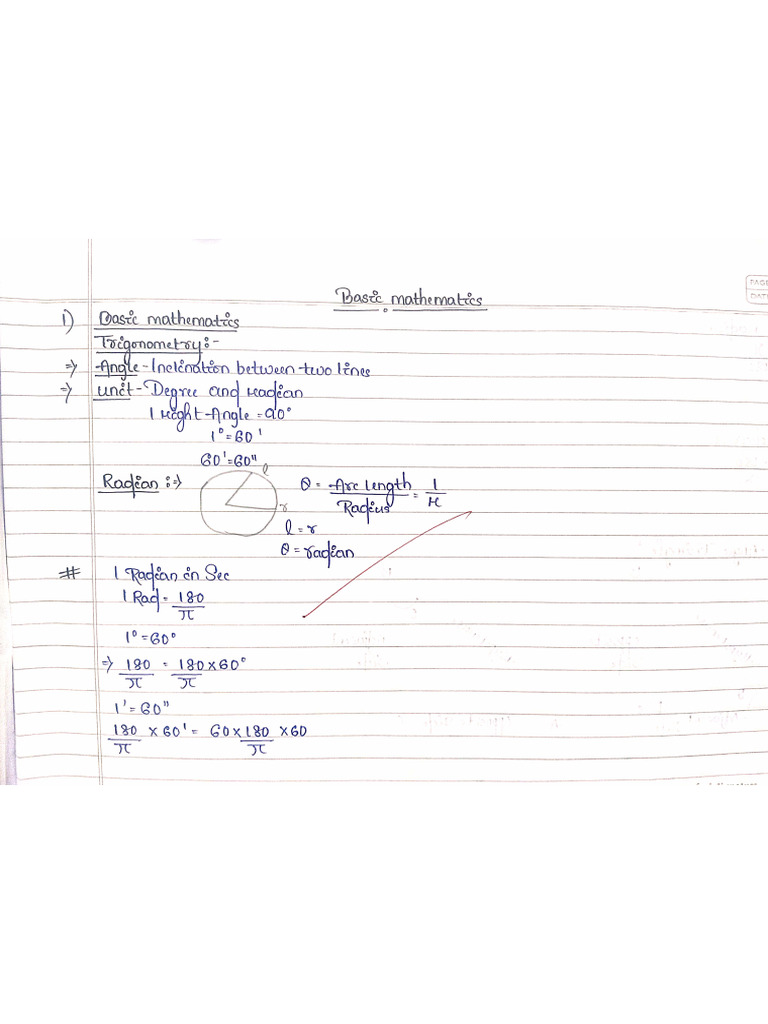 PAGE
DATE
Basic mathematics
1) Basic mathematics
Trigonometry:-
⇒ Angle - Inclination between two lines
⇒ unit - Degree and Radian
1 Right Angle = 90°
1° = 60'
60' = 60"
Radian :⇒ l r θ = Arc length / Radius = l / r
l = r
θ = radian
# 1 Radian in Sec
1 Rad = 180/π
1° = 60°
⇒ 180/π = 180/π × 60°
1' = 60"
180/π × 60' = 60 × 180/π × 60